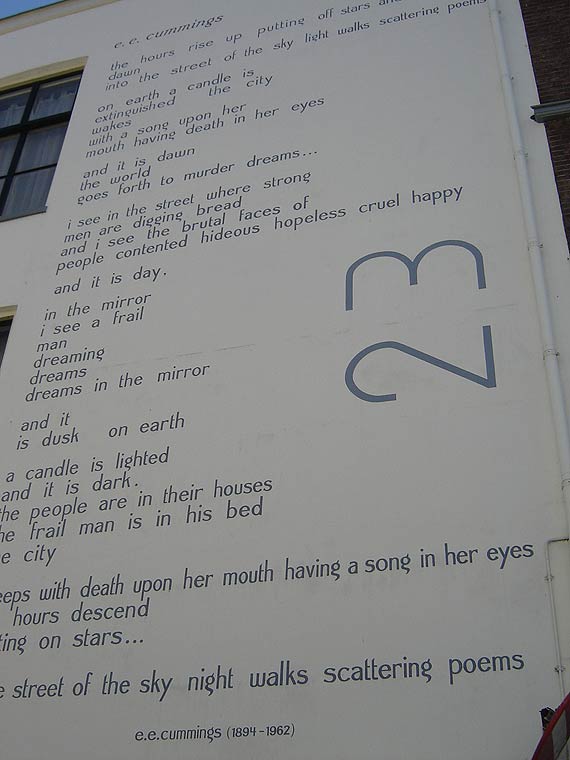 e.e. cummings
the hours rise up putting off stars and
dawn
into the street of the sky light walks scattering poems
on earth a candle is
extinguished the city
wakes
with a song upon her
mouth having death in her eyes
and it is dawn
the world
goes forth to murder dreams...
i see in the street where strong
men are digging bread
and i see the brutal faces of
people contented hideous hopeless cruel happy
and it is day.
in the mirror
i see a frail
man
dreaming
dreams
dreams in the mirror
and it
is dusk on earth
a candle is lighted
and it is dark.
the people are in their houses
he frail man is in his bed
e city
eeps with death upon her mouth having a song in her eyes
hours descend
ting on stars...
e street of the sky night walks scattering poems
23
e.e.cummings (1894-1962)